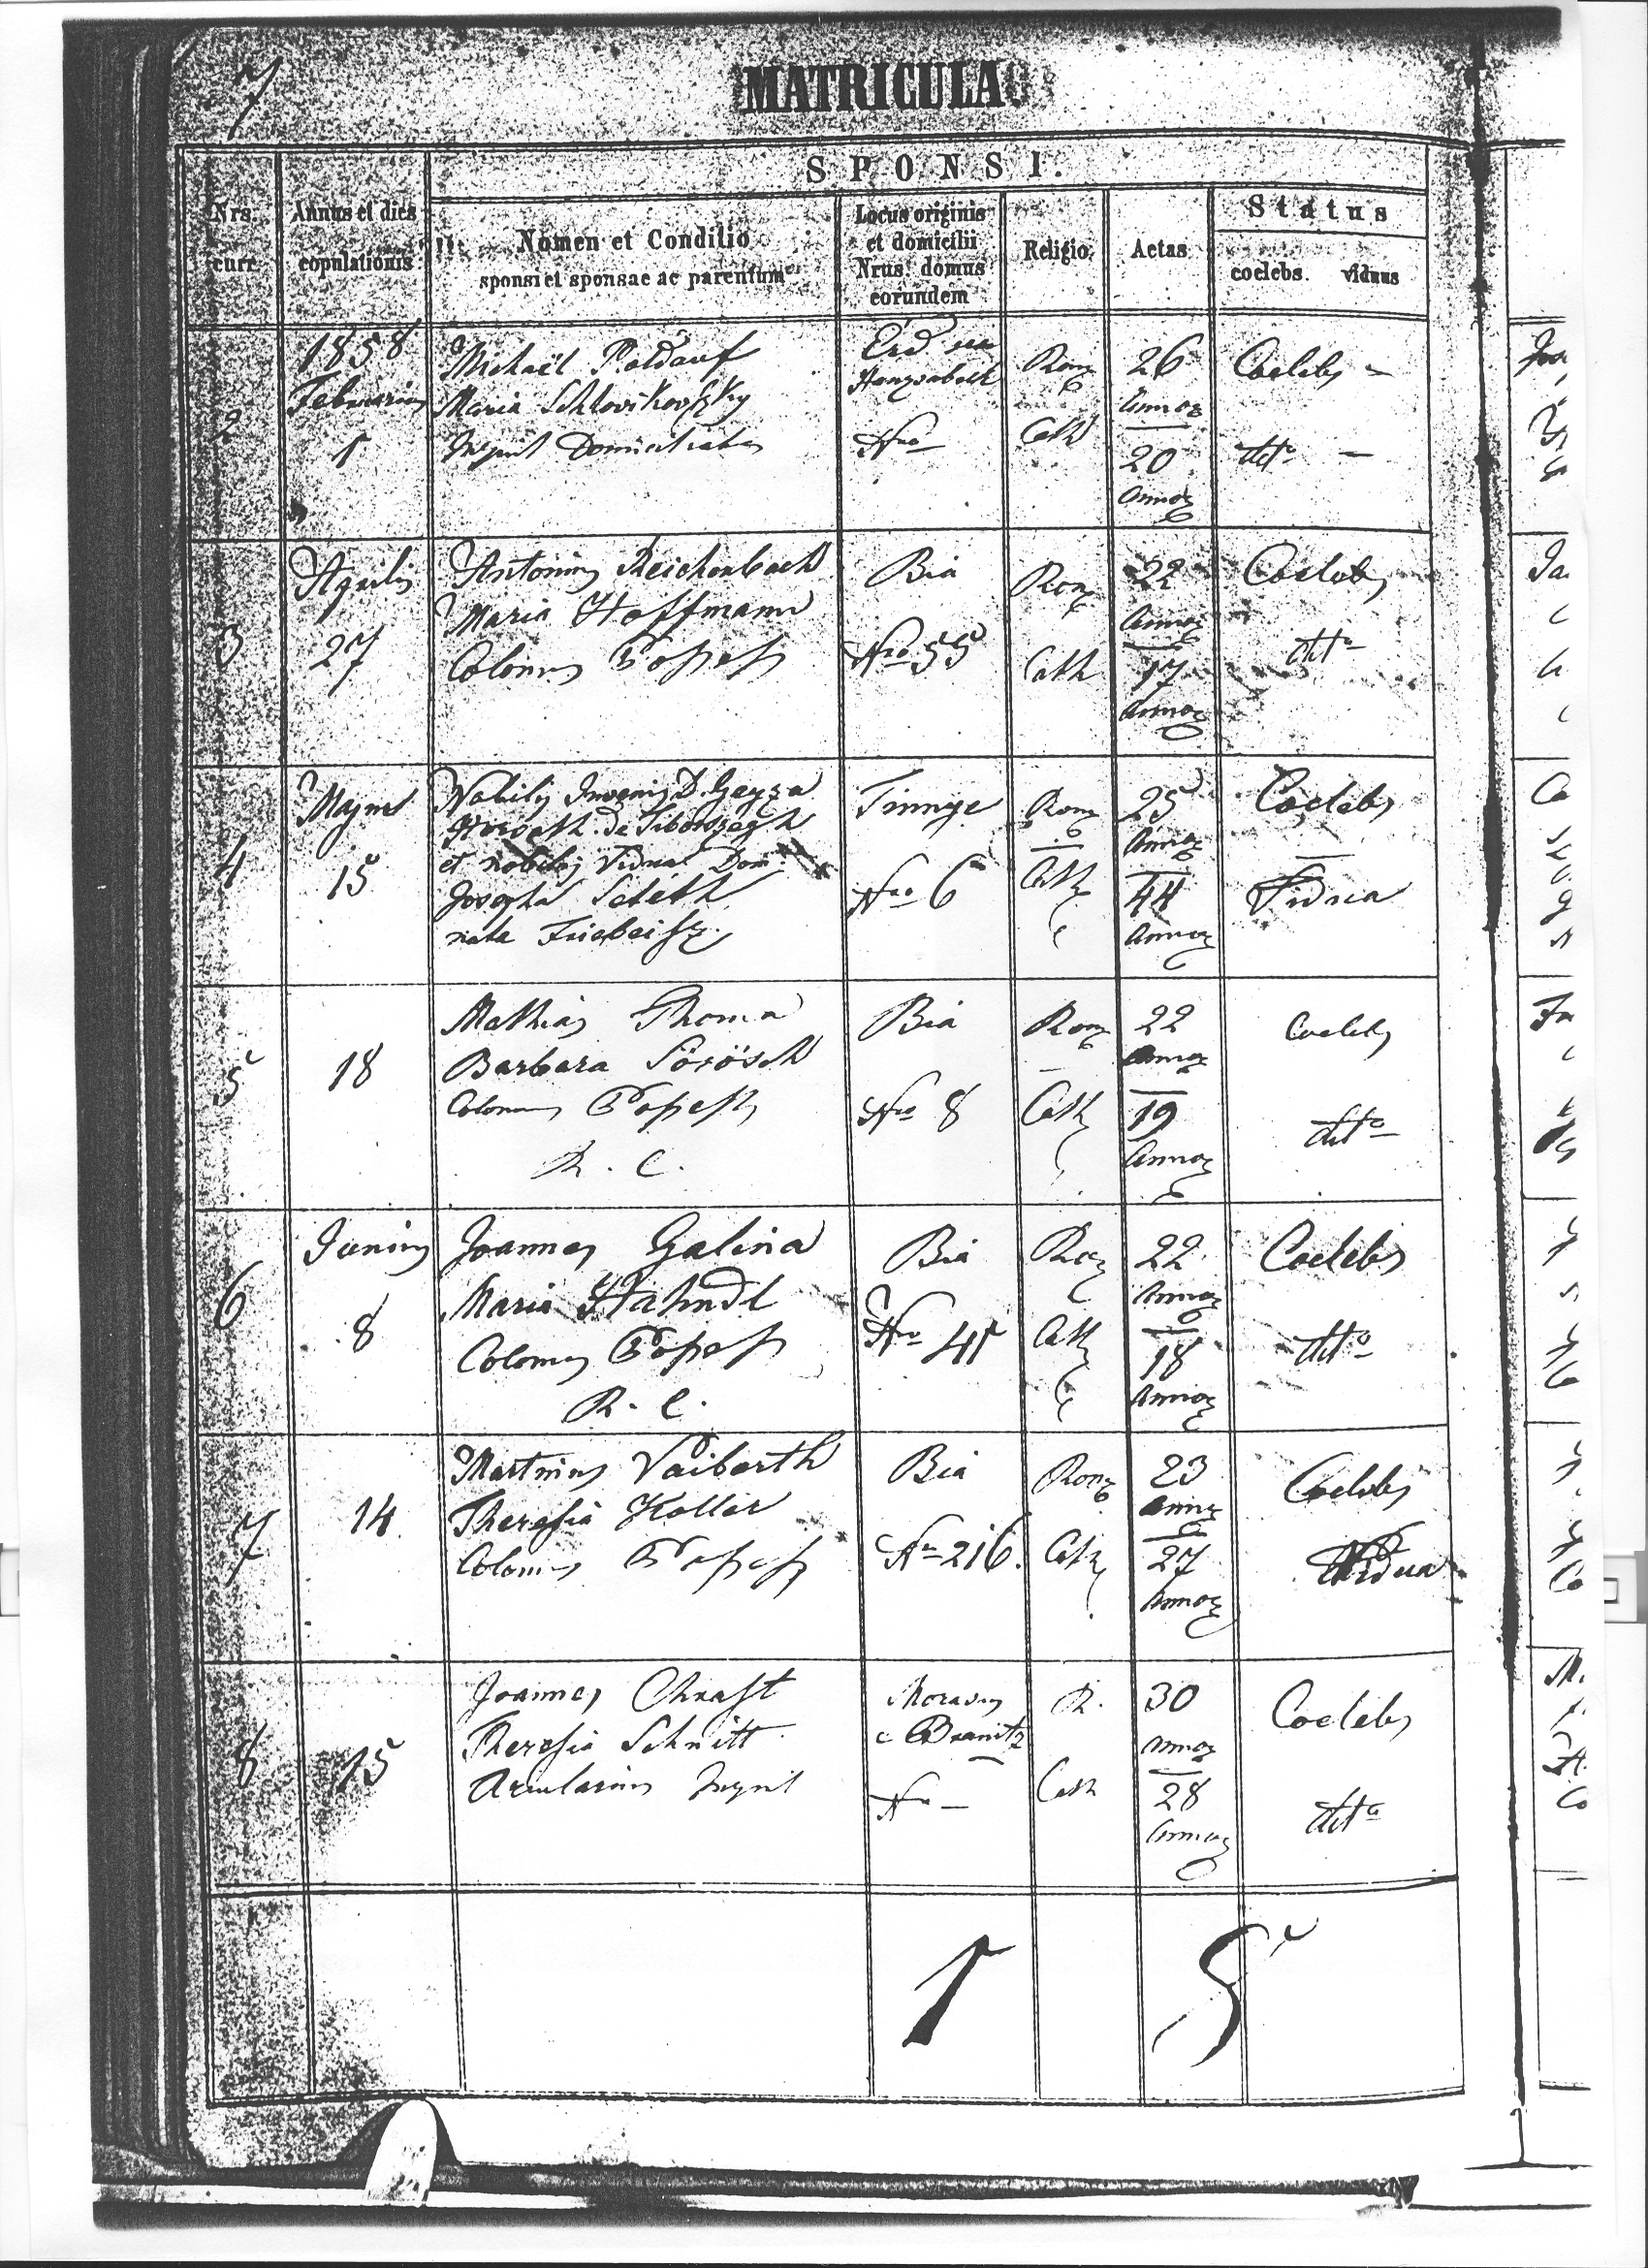 7
MATRICULA
SPONSI.
Nrs. curr.
Annus et dies copulationis
Nomen et Conditio
sponsi et sponsae ac parentum
Locus originis
et domicilii
Nrus. domus
eorundem
Religio
Aetas
Status
coelebs. viduus
2
1858
Februarius
1
Michaël Poldauf
Maria
Inquil
Érd seu
Nro —
Rom
Cath
26
annor
20
annor
Coelebs —
detto —
3
Aprilis
27
Antonius Reichenbach
Maria Hoffmann
Colonus
Bia
Nro 55
Rom
Cath
22
Annor
17
Annor
Coelebs
detto
4
Majus
15
Nobilis Juvenis D. Geyza
Horvath de
et nobilis Vidua Dom.
Josepha
nata Friebeisz
Tinnye
Nro 6
Rom
Cath
25
Annor
44
Annor
Coelebs
Vidua
5
18
Mathias Thoma
Barbara Sörösch
Colonus
R. C.
Bia
Nro 8
Rom
Cath
22
Annor
19
Annor
Coelebs
detto
6
Junius
8
Joannes Galina
Maria Hahndl
Colonus
R. C.
Bia
Nro 41
Rom
Cath
22
Annor
18
Annor
Coelebs
detto
7
14
Martinus Vaibarth
Theresia Koller
Colonus
Bia
Nro 216.
Rom
Cath
23
Annor
27
Annor
Coelebs
Vidua
8
15
Joannes Chrast
Theresia Schnitt
Arcularius Inquil
Moravus
e
Nro —
R.
Cath
30
annor
28
Annor
Coelebs
detto
1 5